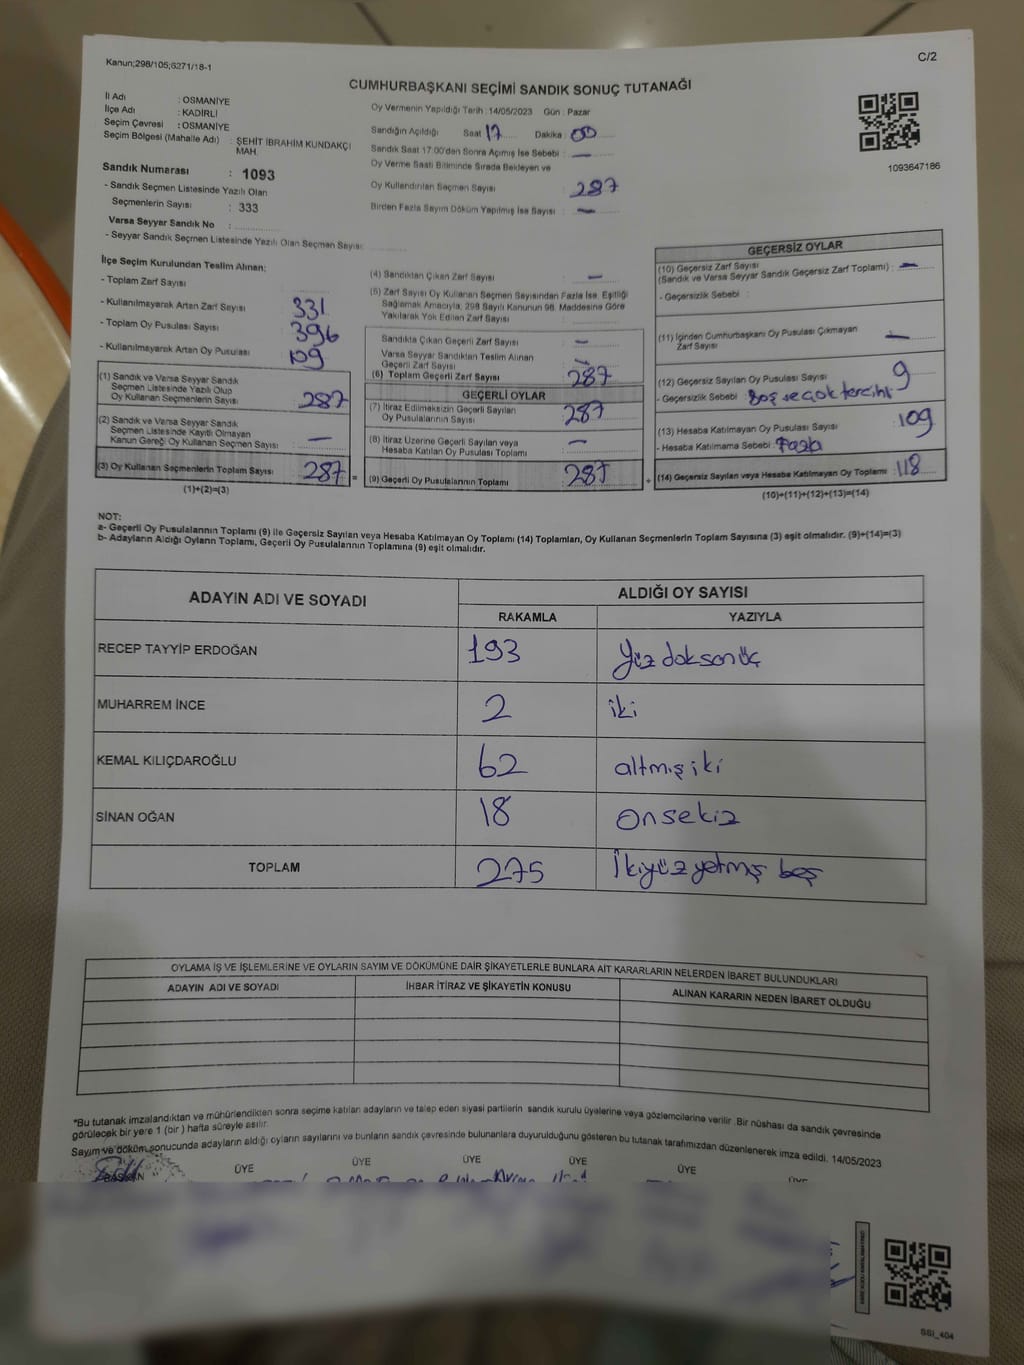 Kanun;298/105;6271/18-1
C/2
CUMHURBAŞKANI SEÇİMİ SANDIK SONUÇ TUTANAĞI
İl Adı : OSMANİYE
İlçe Adı : KADİRLİ
Seçim Çevresi : OSMANİYE
Seçim Bölgesi (Mahalle Adı) : ŞEHİT İBRAHİM KUNDAKÇI
MAH.
Sandık Numarası : 1093
- Sandık Seçmen Listesinde Yazılı Olan
Seçmenlerin Sayısı : 333
Varsa Seyyar Sandık No :
- Seyyar Sandık Seçmen Listesinde Yazılı Olan Seçmen Sayısı
Oy Vermenin Yapıldığı Tarih : 14/05/2023 Gün : Pazar
Sandığın Açıldığı Saat 17 Dakika : 00
Sandık Saat 17:00'den Sonra Açımış İse Sebebi : —
Oy Verme Saati Bitiminde Sırada Bekleyen ve
Oy Kullandırılan Seçmen Sayısı : 287
Birden Fazla Sayım Döküm Yapılmış İse Sayısı : —
1093647186
İlçe Seçim Kurulundan Teslim Alınan:
- Toplam Zarf Sayısı :
- Kullanılmayarak Artan Zarf Sayısı 331
- Toplam Oy Pusulası Sayısı 396
- Kullanılmayarak Artan Oy Pusulası 109
(1) Sandık ve Varsa Seyyar Sandık
Seçmen Listesinde Yazılı Olup
Oy Kullanan Seçmenlerin Sayısı 287
(2) Sandık ve Varsa Seyyar Sandık
Seçmen Listesinde Kayıtlı Olmayan
Kanun Gereği Oy Kullanan Seçmen Sayısı : —
(3) Oy Kullanan Seçmenlerin Toplam Sayısı : 287 =
(1)+(2)=(3)
(4) Sandıktan Çıkan Zarf Sayısı : —
(5) Zarf Sayısı Oy Kullanan Seçmen Sayısından Fazla İse, Eşitliği
Sağlamak Amacıyla; 298 Sayılı Kanunun 98. Maddesine Göre
Yakılarak Yok Edilen Zarf Sayısı :
Sandıkta Çıkan Geçerli Zarf Sayısı : —
Varsa Seyyar Sandıktan Teslim Alınan
Geçerli Zarf Sayısı : —
(6) Toplam Geçerli Zarf Sayısı : 287
GEÇERLİ OYLAR
(7) İtiraz Edilmeksizin Geçerli Sayılan
Oy Pusulalarının Sayısı : 287
(8) İtiraz Üzerine Geçerli Sayılan veya
Hesaba Katılan Oy Pusulaları Toplamı : —
(9) Geçerli Oy Pusulalarının Toplamı : 287 +
GEÇERSİZ OYLAR
(10) Geçersiz Zarf Sayısı
(Sandık ve Varsa Seyyar Sandık Geçersiz Zarf Toplamı) : —
- Geçersizlik Sebebi :
(11) İçinden Cumhurbaşkanı Oy Pusulası Çıkmayan
Zarf Sayısı : —
(12) Geçersiz Sayılan Oy Pusulası Sayısı : 9
- Geçersizlik Sebebi : Boş ve çok tercihi
(13) Hesaba Katılmayan Oy Pusulası Sayısı : 109
- Hesaba Katılmama Sebebi : Fazla
(14) Geçersiz Sayılan veya Hesaba Katılmayan Oy Toplamı : 118
(10)+(11)+(12)+(13)=(14)
NOT:
a- Geçerli Oy Pusulalarının Toplamı (9) ile Geçersiz Sayılan veya Hesaba Katılmayan Oy Toplamı (14) Toplamları, Oy Kullanan Seçmenlerin Toplam Sayısına (3) eşit olmalıdır. (9)+(14)=(3)
b- Adayların Aldığı Oyların Toplamı, Geçerli Oy Pusulalarının Toplamına (9) eşit olmalıdır.
ADAYIN ADI VE SOYADI ALDIĞI OY SAYISI
RAKAMLA YAZIYLA
RECEP TAYYİP ERDOĞAN 193 yüz doksonüç
MUHARREM İNCE 2 iki
KEMAL KILIÇDAROĞLU 62 altmış iki
SİNAN OĞAN 18 onsekiz
TOPLAM 275 İkiyüz yetmiş beş
OYLAMA İŞ VE İŞLEMLERİNE VE OYLARIN SAYIM VE DÖKÜMÜNE DAİR ŞİKAYETLERLE BUNLARA AİT KARARLARIN NELERDEN İBARET BULUNDUKLARI
ADAYIN ADI VE SOYADI İHBAR İTİRAZ VE ŞİKAYETİN KONUSU ALINAN KARARIN NEDEN İBARET OLDUĞU
*Bu tutanak imzalandıktan ve mühürlendikten sonra seçime katılan adayların ve talep eden siyasi partilerin sandık kurulu üyelerine veya gözlemcilerine verilir. Bir nüshası da sandık çevresinde
görülecek bir yere 1 (bir) hafta süreyle asılır.
Sayım ve döküm sonucunda adayların aldığı oyların sayılarını ve bunların sandık çevresinde bulunanlara duyurulduğunu gösteren bu tutanak tarafımızdan düzenlenerek imza edildi. 14/05/2023
BAŞKAN ÜYE ÜYE ÜYE ÜYE ÜYE ÜYE
SSI_404